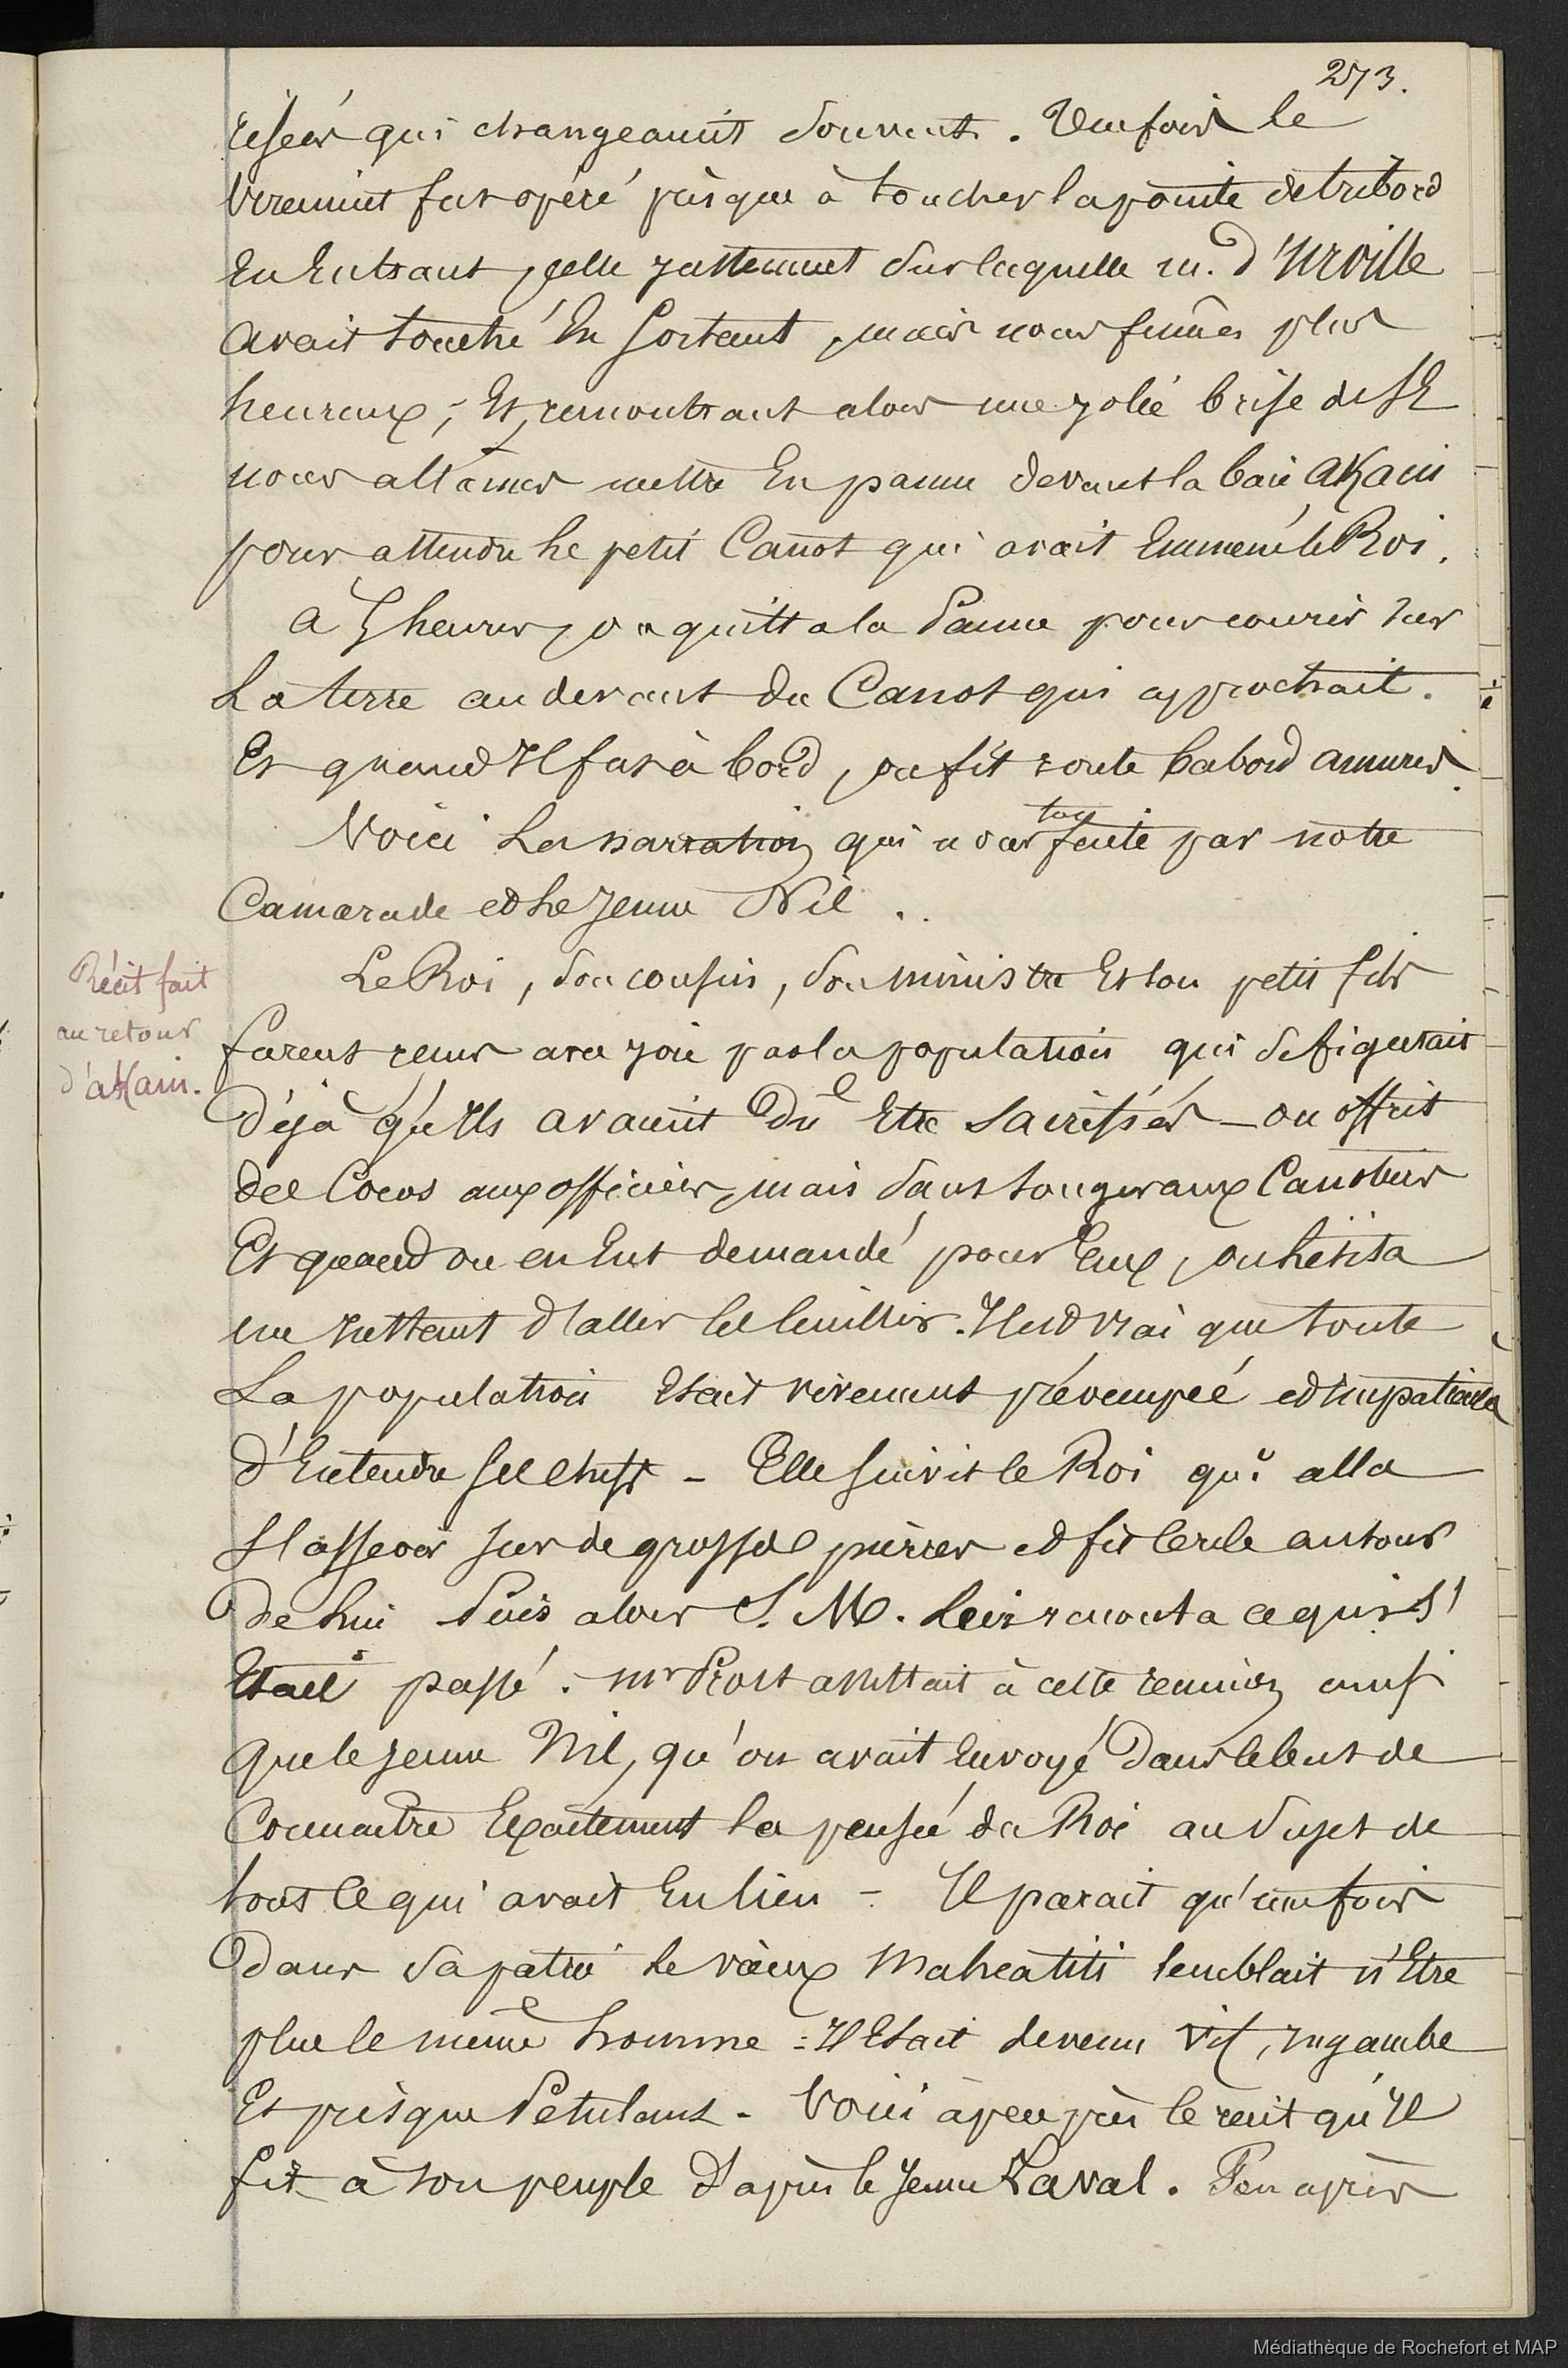 273.
risées qui changeaient souvent. Une fois le
virement fut opéré presque à toucher la pointe de tribord
En Entrant, celle justement sur laquelle m. d'Urville
avait touché En Sortant, mais nous fumês plus
heureux; Et, rencontrant alors une jolie brise de SE
nous allâmes mettre En panne devant la baie AKani
pour attendre le petit Canot qui avait Emmené le Roi.
à 5 heures, on quitta la Panne pour courir sur
La terre au devant du Canot qui approchait.
Et quand Il fut à bord, on fit route babord amures.
Voici La narration qui nous fut faite par notre
Camarade et le Jeune Nil.
Récit fait
au retour
d'aKani.
Le Roi, son cousin, son ministre Et son petit fils
furent reçus avec joie par la population qui se figurait
Déjà qu'Ils avaient Dû Etre sacrifiés – on offrit
des Cocos aux officiers, mais sans songer aux Canotiers
Et quand on en Eut demandé pour Eux, on hésita
un Instant d'aller les Cueillir. Il est vrai que toute
La population Etait vivement préoccupée et Impatiente
d'Entendre ses chefs – Elle suivit le Roi qui alla
S'asseoir sur de grosses pierres et fit Cercle autour
de Lui Puis alors S. M. Leur raconta ce qui s'
Etait passé. Mr Prost assistait à cette reunion ainsi
que le Jeune Nil, qu'on avait Envoyé Dans le but de
Connaitre Exactement la pensée du Roi au Sujet de
tout ce qui avait Eu lieu – Il parait qu'une fois
Dans sa patrie le vieux Maheatiti semblait n'Etre
plus le même homme : Il Etait devenu vif, Ingambe
Et presque Petulant – Voici à peu près le récit qu'Il
fit à son peuple d'après le Jeune Laval. Peu après
Médiathèque de Rochefort et MAP